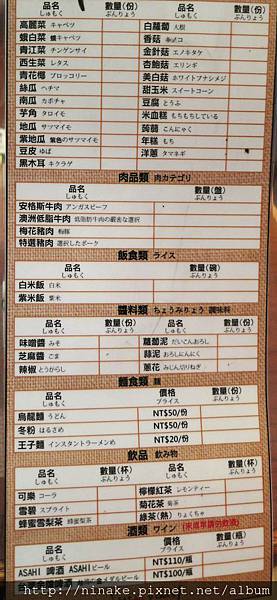 品名 數量(份) 品名 數量(份)
しゅもく ぶんりょう しゅもく ぶんりょう
高麗菜 キャベツ 白蘿蔔 大根
青江菜 チンゲンサイ 金針菇 エノキタケ
西生菜 レタス 杏鮑菇 エリンギ
青花椰 ブロッコリー 美白菇 ホワイトブナシメジ
絲瓜 ヘチマ 甜玉米 スイートコーン
南瓜 カボチャ 豆腐 とうふ
芋角 タロイモ 米血糕 もちもちしている
地瓜 サツマイモ 蒟蒻 こんにゃく
紫地瓜 紫色のサツマイモ 年糕 もち
豆皮 ゆば 洋蔥 タマネギ
黑木耳 キクラゲ
肉品類 肉カテゴリ
品名 數量(盤)
しゅもく ぶんりょう
安格斯牛肉 アンガスビーフ
澳洲低脂牛肉 低脂肪牛肉の厳密な選択
梅花豬肉
特選豬肉 選択したポーク
飯食類 ライス
品名 數量(碗)
しゅもく ぶんりょう
白米飯 白米
紫米飯 紫米
醬料類 ちょうみりょう 調味料
品名 數量(份) 品名 數量(份)
しゅもく ぶんりょう しゅもく ぶんりょう
味噌醬 みそ 蘿蔔泥 だいこんおろし
芝麻醬 ごま 蒜泥 おろしにんにく
辣椒 とうがらし 蔥花 みじん切りねぎ
麵食類 麺
品名 價格 數量(份)
しゅもく プライス ぶんりょう
烏龍麵 うどん NT$50/份
冬粉 はるさめ NT$50/份
王子麵 インスタントラーメン NT$20/份
飲品 飲み物
品名 數量(杯) 品名 數量(杯)
しゅもく ぶんりょう しゅもく ぶんりょう
可樂 コーラ 檸檬紅茶 レモンティー
雪碧 スプライト 菊花茶 菊茶
蜂蜜雪梨茶 蜂蜜梨茶 綠茶(熱) りょくちゃ
酒類 ワイン
品名 價格 數量(瓶)
しゅもく プライス ぶんりょう
ASAHI 啤酒 ASAHI ビール NT$110/瓶
NT$100/瓶
http://ninake.pixnet.net/album